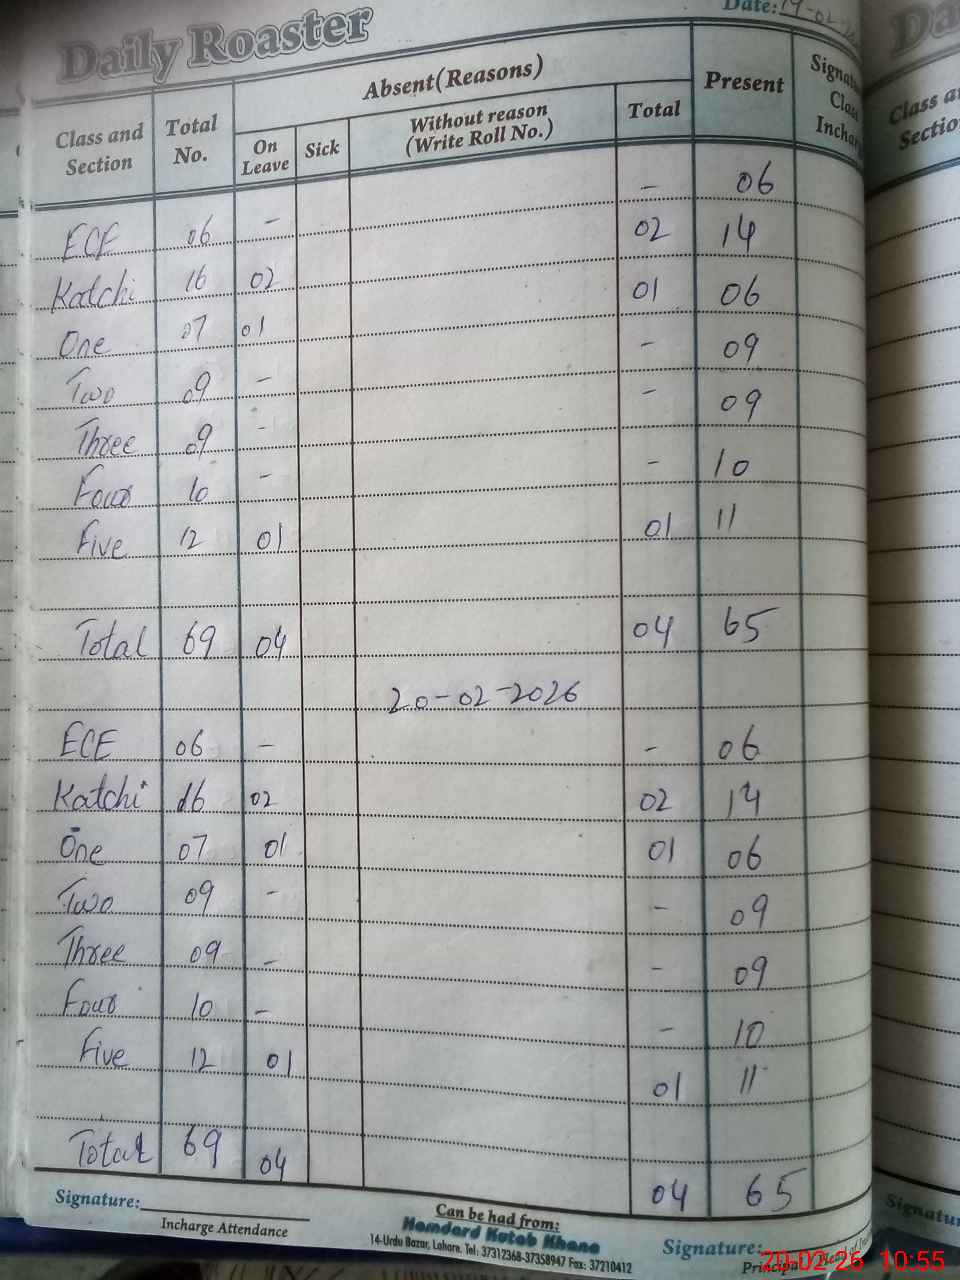 Daily Roaster
Date: 19-02-
Class and Section Total No. Absent(Reasons) Present
On Leave Sick Without reason (Write Roll No.) Total
ECE 06 - - 06
Katchi 16 02 02 14
One 07 01 01 06
Two 09 - - 09
Three 09 - - 09
Four 10 - - 10
Five 12 01 01 11
Total 69 04 04 65
20-02-2026
ECE 06 - - 06
Katchi 16 02 02 14
One 07 01 01 06
Two 09 - - 09
Three 09 - - 09
Four 10 - - 10
Five 12 01 01 11
Total 69 04 04 65
Signature:
Incharge Attendance
Can be had from:
Hamdard Kutab Khana
14-Urdu Bazar, Lahore. Tel: 37312368-37358947 Fax: 37210412
Signature:
Principal
20-02-26 10:55